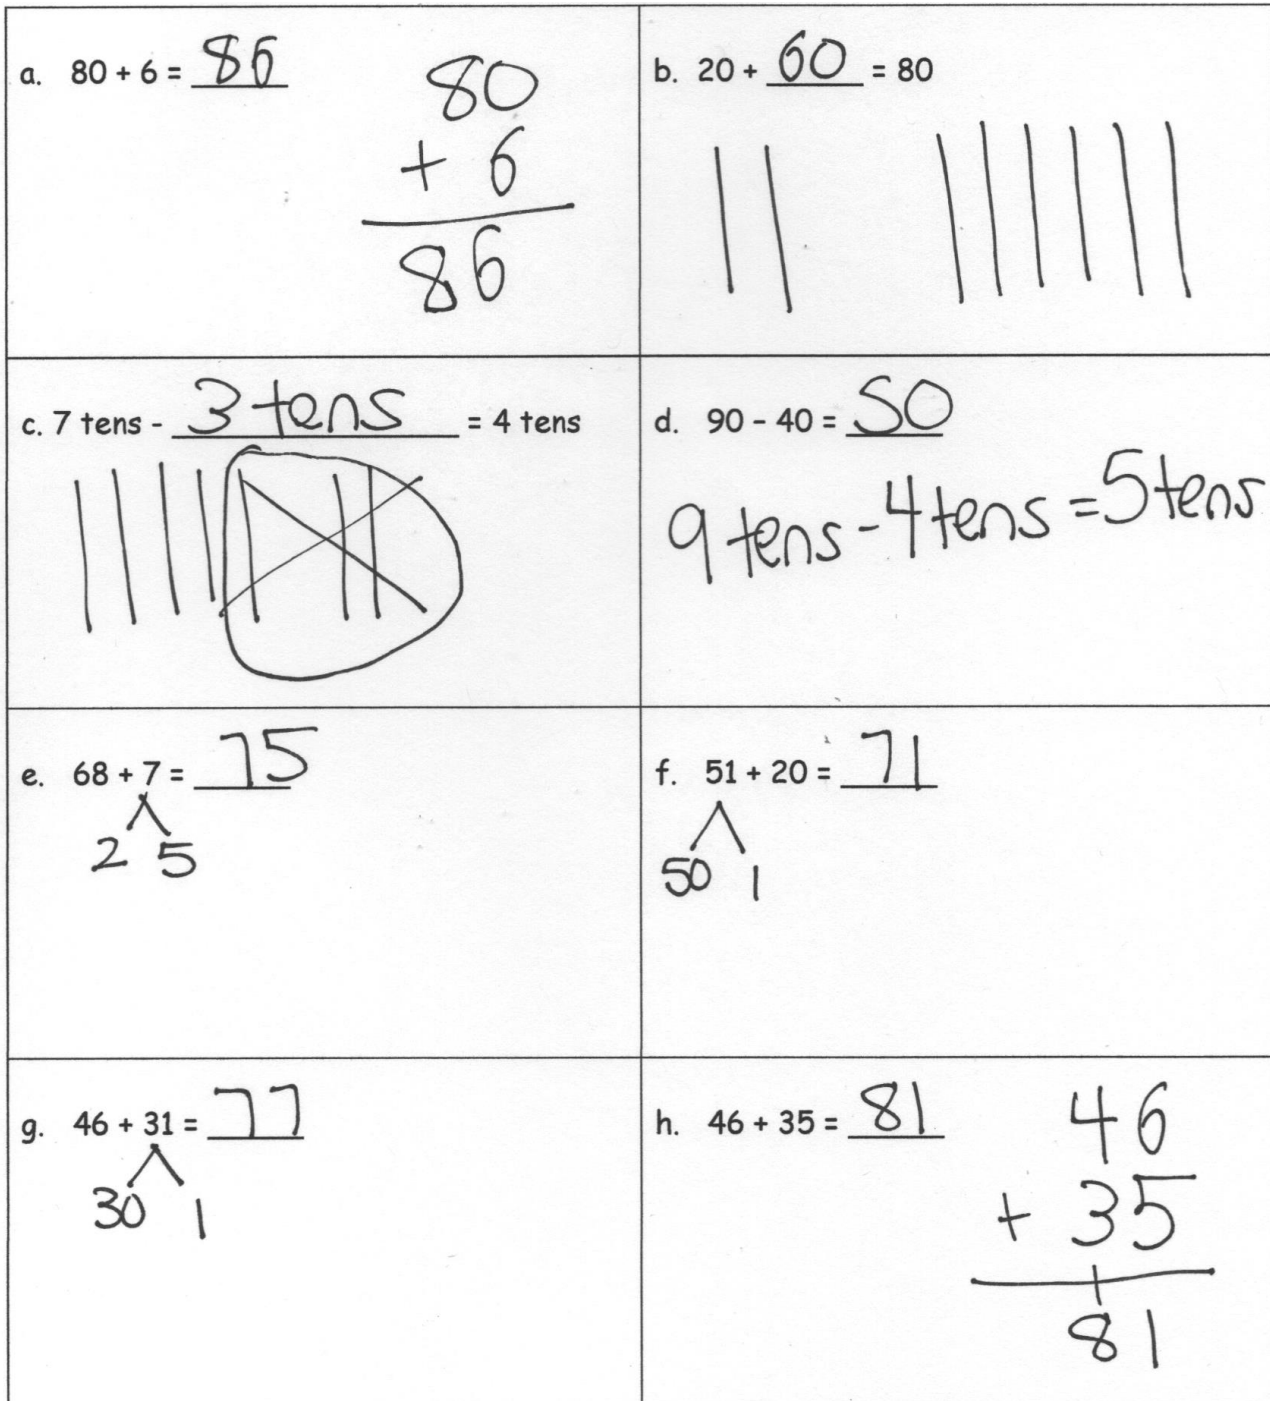 a. 80 + 6 = 86
80
+ 6
86
b. 20 + 60 = 80
c. 7 tens - 3 tens = 4 tens
d. 90 - 40 = 50
9 tens - 4 tens = 5 tens
e. 68 + 7 = 75
2 5
f. 51 + 20 = 71
50 1
g. 46 + 31 = 77
30 1
h. 46 + 35 = 81
46
+ 35
1
81